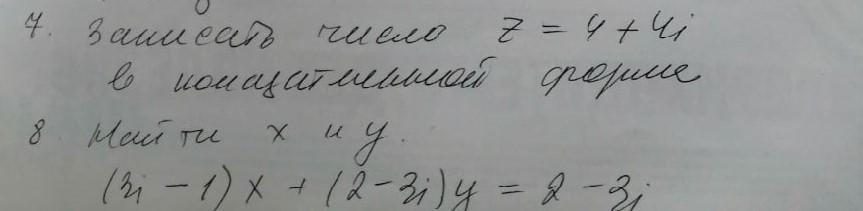 7. Записать число z = 4 + 4i
в показательной форме
8 Найти x и y.
(3i - 1)x + (2 - 3i)y = 2 - 3i